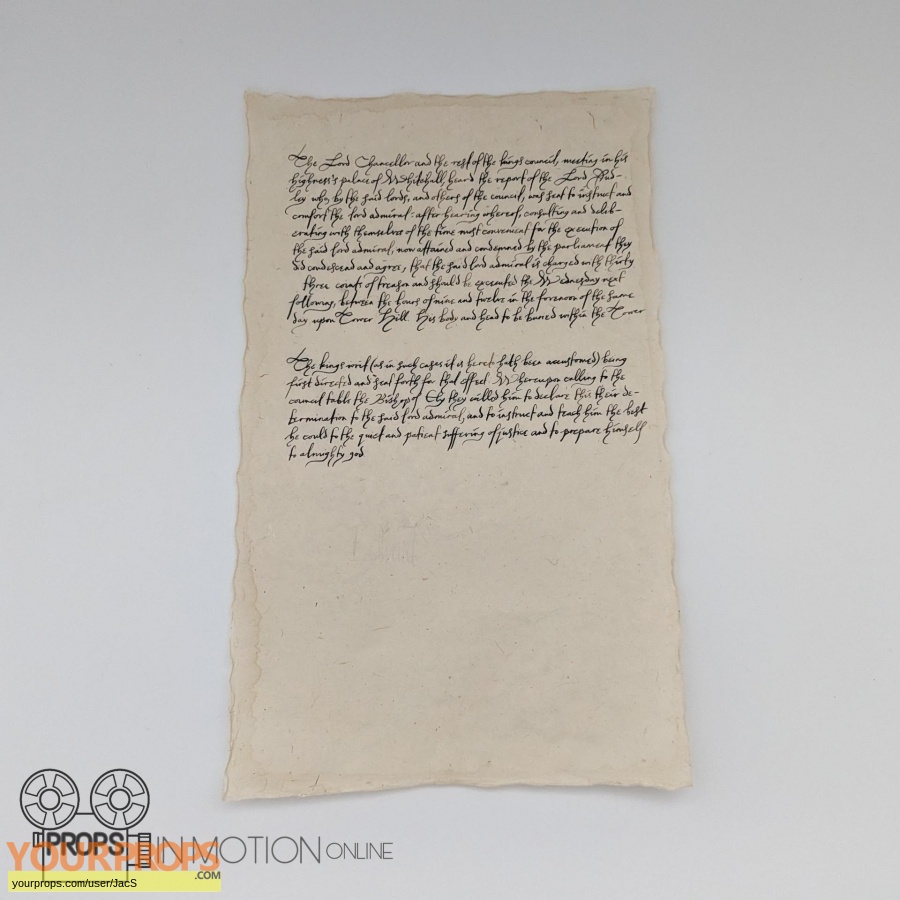 The Lord Chancellor and the rest of the kings council, meeting in his
highness's palace of Whitehall, heard the report of the Lord Aud-
ley who by the said lords, and others of the council, was sent to instruct and
comfort the lord admiral: after hearing whereof, consulting and delib-
erating with themselves of the time most convenient for the execution of
the said lord admiral, now attained and condemned by the parliament they
did condescend and agree, that the said lord admiral is charged with thirty
three counts of treason and should be executed the Wednesday next
following, between the hours of nine and twelve in the forenoon of the same
day upon Tower Hill. His body and head to be buried within the Tower
The kings writ (as in such cases it as hereto hath been accustomed) being
first directed and sent forth for that effect. Whereupon calling to the
council table the Bishop of Ely they called him to declare this their de-
termination to the said lord admiral, and to instruct and teach him the best
he could to the quiet and patient suffering of justice and to prepare himself
to almighty god
PROPS
IN MOTION ONLINE
YOURPROPS
.COM
yourprops.com/user/JacS